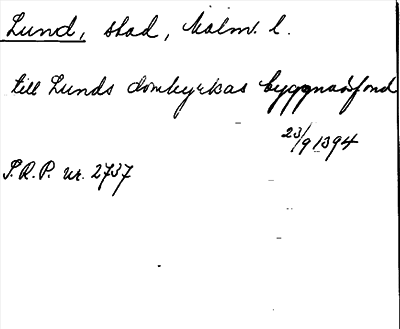 Lund, stad, Malm. l.
till Lunds domkyrkas byggnadsfond
23/9 1394
S.R.P. nr. 2737